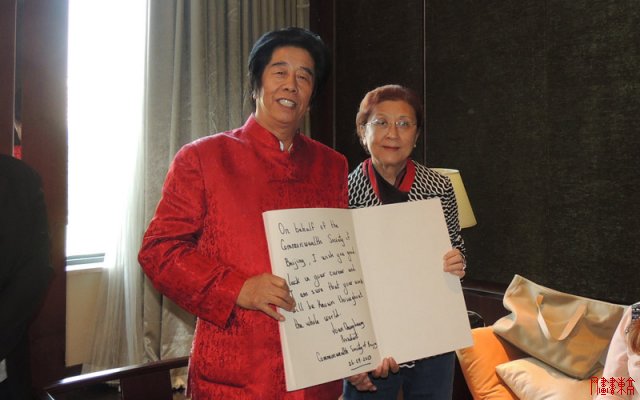 On behalf of the
Commonwealth Society of
Beijing, I wish you good
luck in your career and
I am sure that your work
will be known throughout
the whole world.
President
Commonwealth Society of Beijing